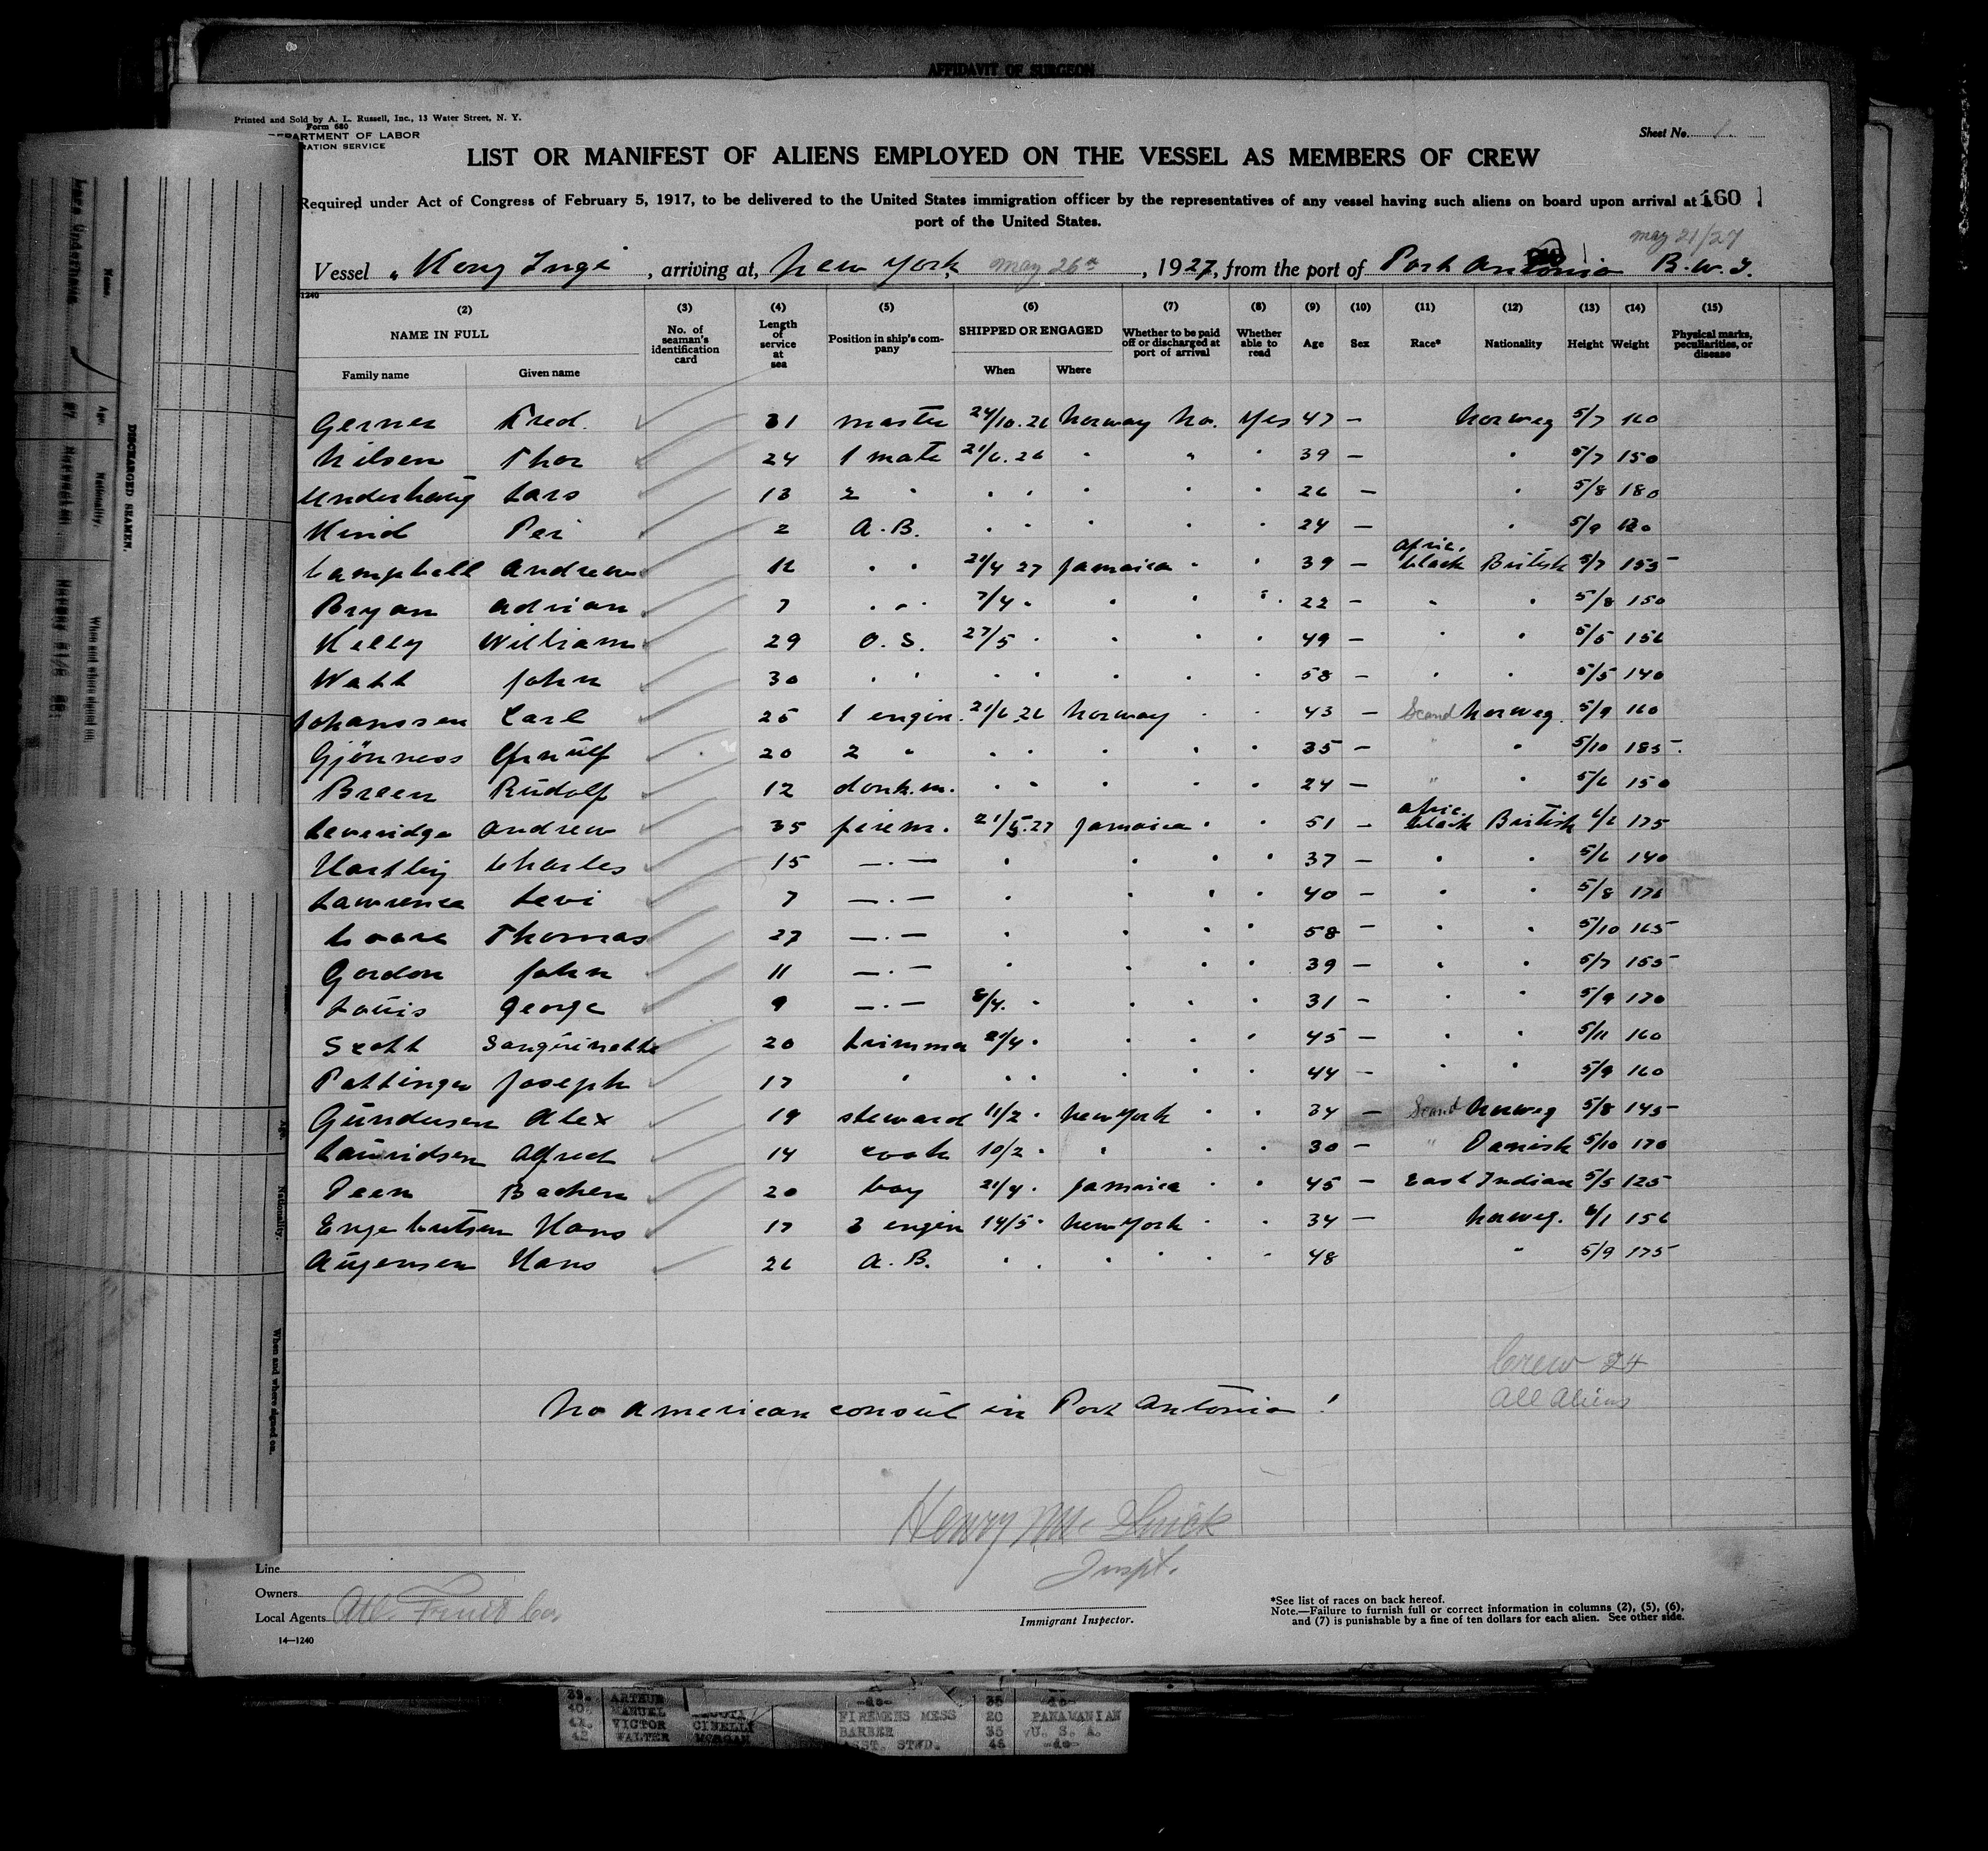 AFFIDAVIT OF SURGEON
Printed and Sold by A. L. Russell, Inc., 13 Water Street, N. Y.
Form 680
DEPARTMENT OF LABOR
RATION SERVICE
Sheet No. 1.
LIST OR MANIFEST OF ALIENS EMPLOYED ON THE VESSEL AS MEMBERS OF CREW
Required under Act of Congress of February 5, 1917, to be delivered to the United States immigration officer by the representatives of any vessel having such aliens on board upon arrival at a 160
port of the United States.
may 21/27
Vessel "Kong Inge, arriving at, New York, may 26th, 1927, from the port of Port Antonio B.W.I.
1240
(2) (3) (4) (5) (6) (7) (8) (9) (10) (11) (12) (13) (14) (15)
NAME IN FULL No. of seaman's identification card Length of service at sea Position in ship's company SHIPPED OR ENGAGED Whether to be paid off or discharged at port of arrival Whether able to read Age Sex Race* Nationality Height Weight Physical marks, peculiarities, or disease
Family name Given name When Where
Gerner Fred. 31 master 24/10.26 Norway No. Yes 47 — Norweg 5/7 160
Nilsen Thor 24 1 mate 21/6.26 " " " 39 — " 5/7 150
Underhaug Lars 13 2 " " " " " " 26 — " 5/8 180
Kind Per 2 A.B. " " " " " 24 — " 5/9
afric.
Campbell Andrew 12 " " 21/4 27 Jamaica " " 39 — black British 5/7 155
Bryan Adrian 7 " " 7/4 " " " " 22 — " " 5/8 150
Kelly William 29 O.S. 27/5 " " " " 49 — " " 5/5 156
Watt John 30 " " " " " " " 58 — " " 5/5 140
Johanssen Carl 25 1 engin. 21/6 26 Norway " " 43 — Scand Norweg. 5/9 160
Gjönness 20 2 " " " " " " 35 — " " 5/10 185
Breen Rudolf 12 donk.m. " " " " " 24 — " " 5/6 150
afric.
Leveridge Andrew 35 firem. 21/5.27 Jamaica " " 51 — black British 6/2 175
Hartley Charles 15 —"— " " " " 37 — " " 5/6 140
Lawrence Levi 7 —"— " " " " 40 — " " 5/8 176
Thomas 27 —"— " " " " 58 — " " 5/10 165
Gordon John 11 —"— " " " " 39 — " " 5/7 155
Louis George 9 —"— 8/4. " " " " 31 — " " 5/9 170
Scott Sanguinette 20 trimmer 21/4 " " " " 45 — " " 5/11 160
Pottinger Joseph 17 " " " " " " 44 — " " 5/9 160
Gundersen Alex 19 steward 11/2 " New York " " 34 — Scand Norweg 5/8 145
Lauridsen Alfred 14 cook 10/2 " " " " 30 — " Danish 5/10 170
Peen Bachen 20 boy 21/4 " Jamaica " " 45 — East Indian 5/5 125
Engebretsen Hans 17 3 engin 14/5 " New York " " 34 — Norweg. 6/1 156
Augensen Hans 26 A.B. " " " " " 48 " 5/9 175
Crew 24
All Aliens
No American consul in Port Antonio!
Inspt.
Line
Owners
Local Agents Atl. Fruit Co
Immigrant Inspector.
*See list of races on back hereof.
Note.—Failure to furnish full or correct information in columns (2), (5), (6),
and (7) is punishable by a fine of ten dollars for each alien. See other side.
14—1240
DISCHARGED SEAMEN.
Name.
Age.
Nationality.
When and where signed on
Lars Underhaug
Age.
Nationality.
When and where signed on.
39. ARTHUR -do- 35 -do-
40. MANUEL FIREMENS MESS 20 PANAMANIAN
41. VICTOR CINELLI BARBER 35 vU. S. A.
42. WALTER MORGAN ASST. STWD. 46 -do-